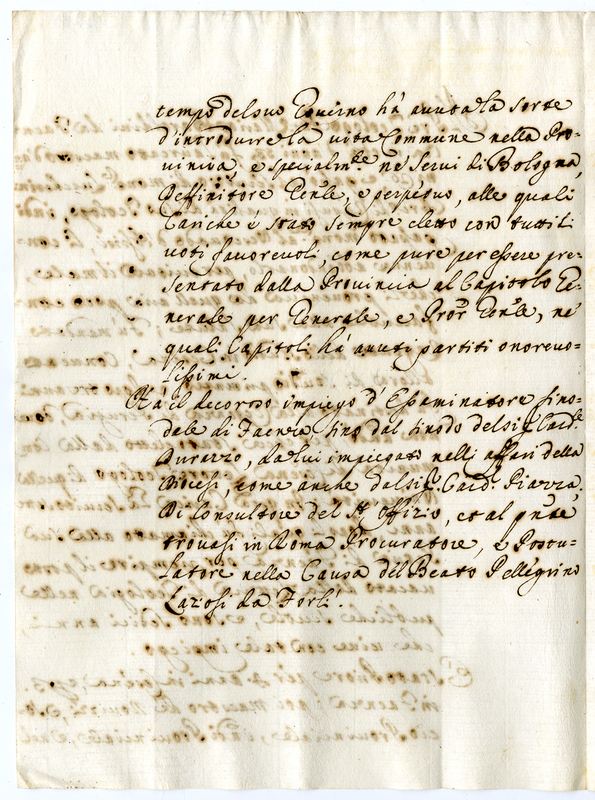 tempo del suo Governo hà avuta la sorte
d'introdurre la vita Commune nella Pro-
vincia, e specialm.te ne Servi di Bologna,
Deffinitore Gen.le, e perpetuo, alle quali
Cariche è stato sempre eletto con tutti li
voti favorevoli, come pure per essere pre-
sentato dalla Provincia al Capitolo Ge-
nerale per Generale, e Pror Gen.le, ne
quali Capitoli hà avuti partiti onorevo-
lissimi.
Hà il decoroso impiego d'Essaminatore sino-
dale di Faenza sino dal sinodo del sig. Card.le
Durazzo, da lui impiegato nelli affari della
Diocesi, come anche dal sig. Card. Piazza,
Di Consultore del St. Offizio, et al pnte
trovasi in Roma Procuratore, e Postu-
latore nella Causa del Beato Pellegrino
Laziosi da Forlì.